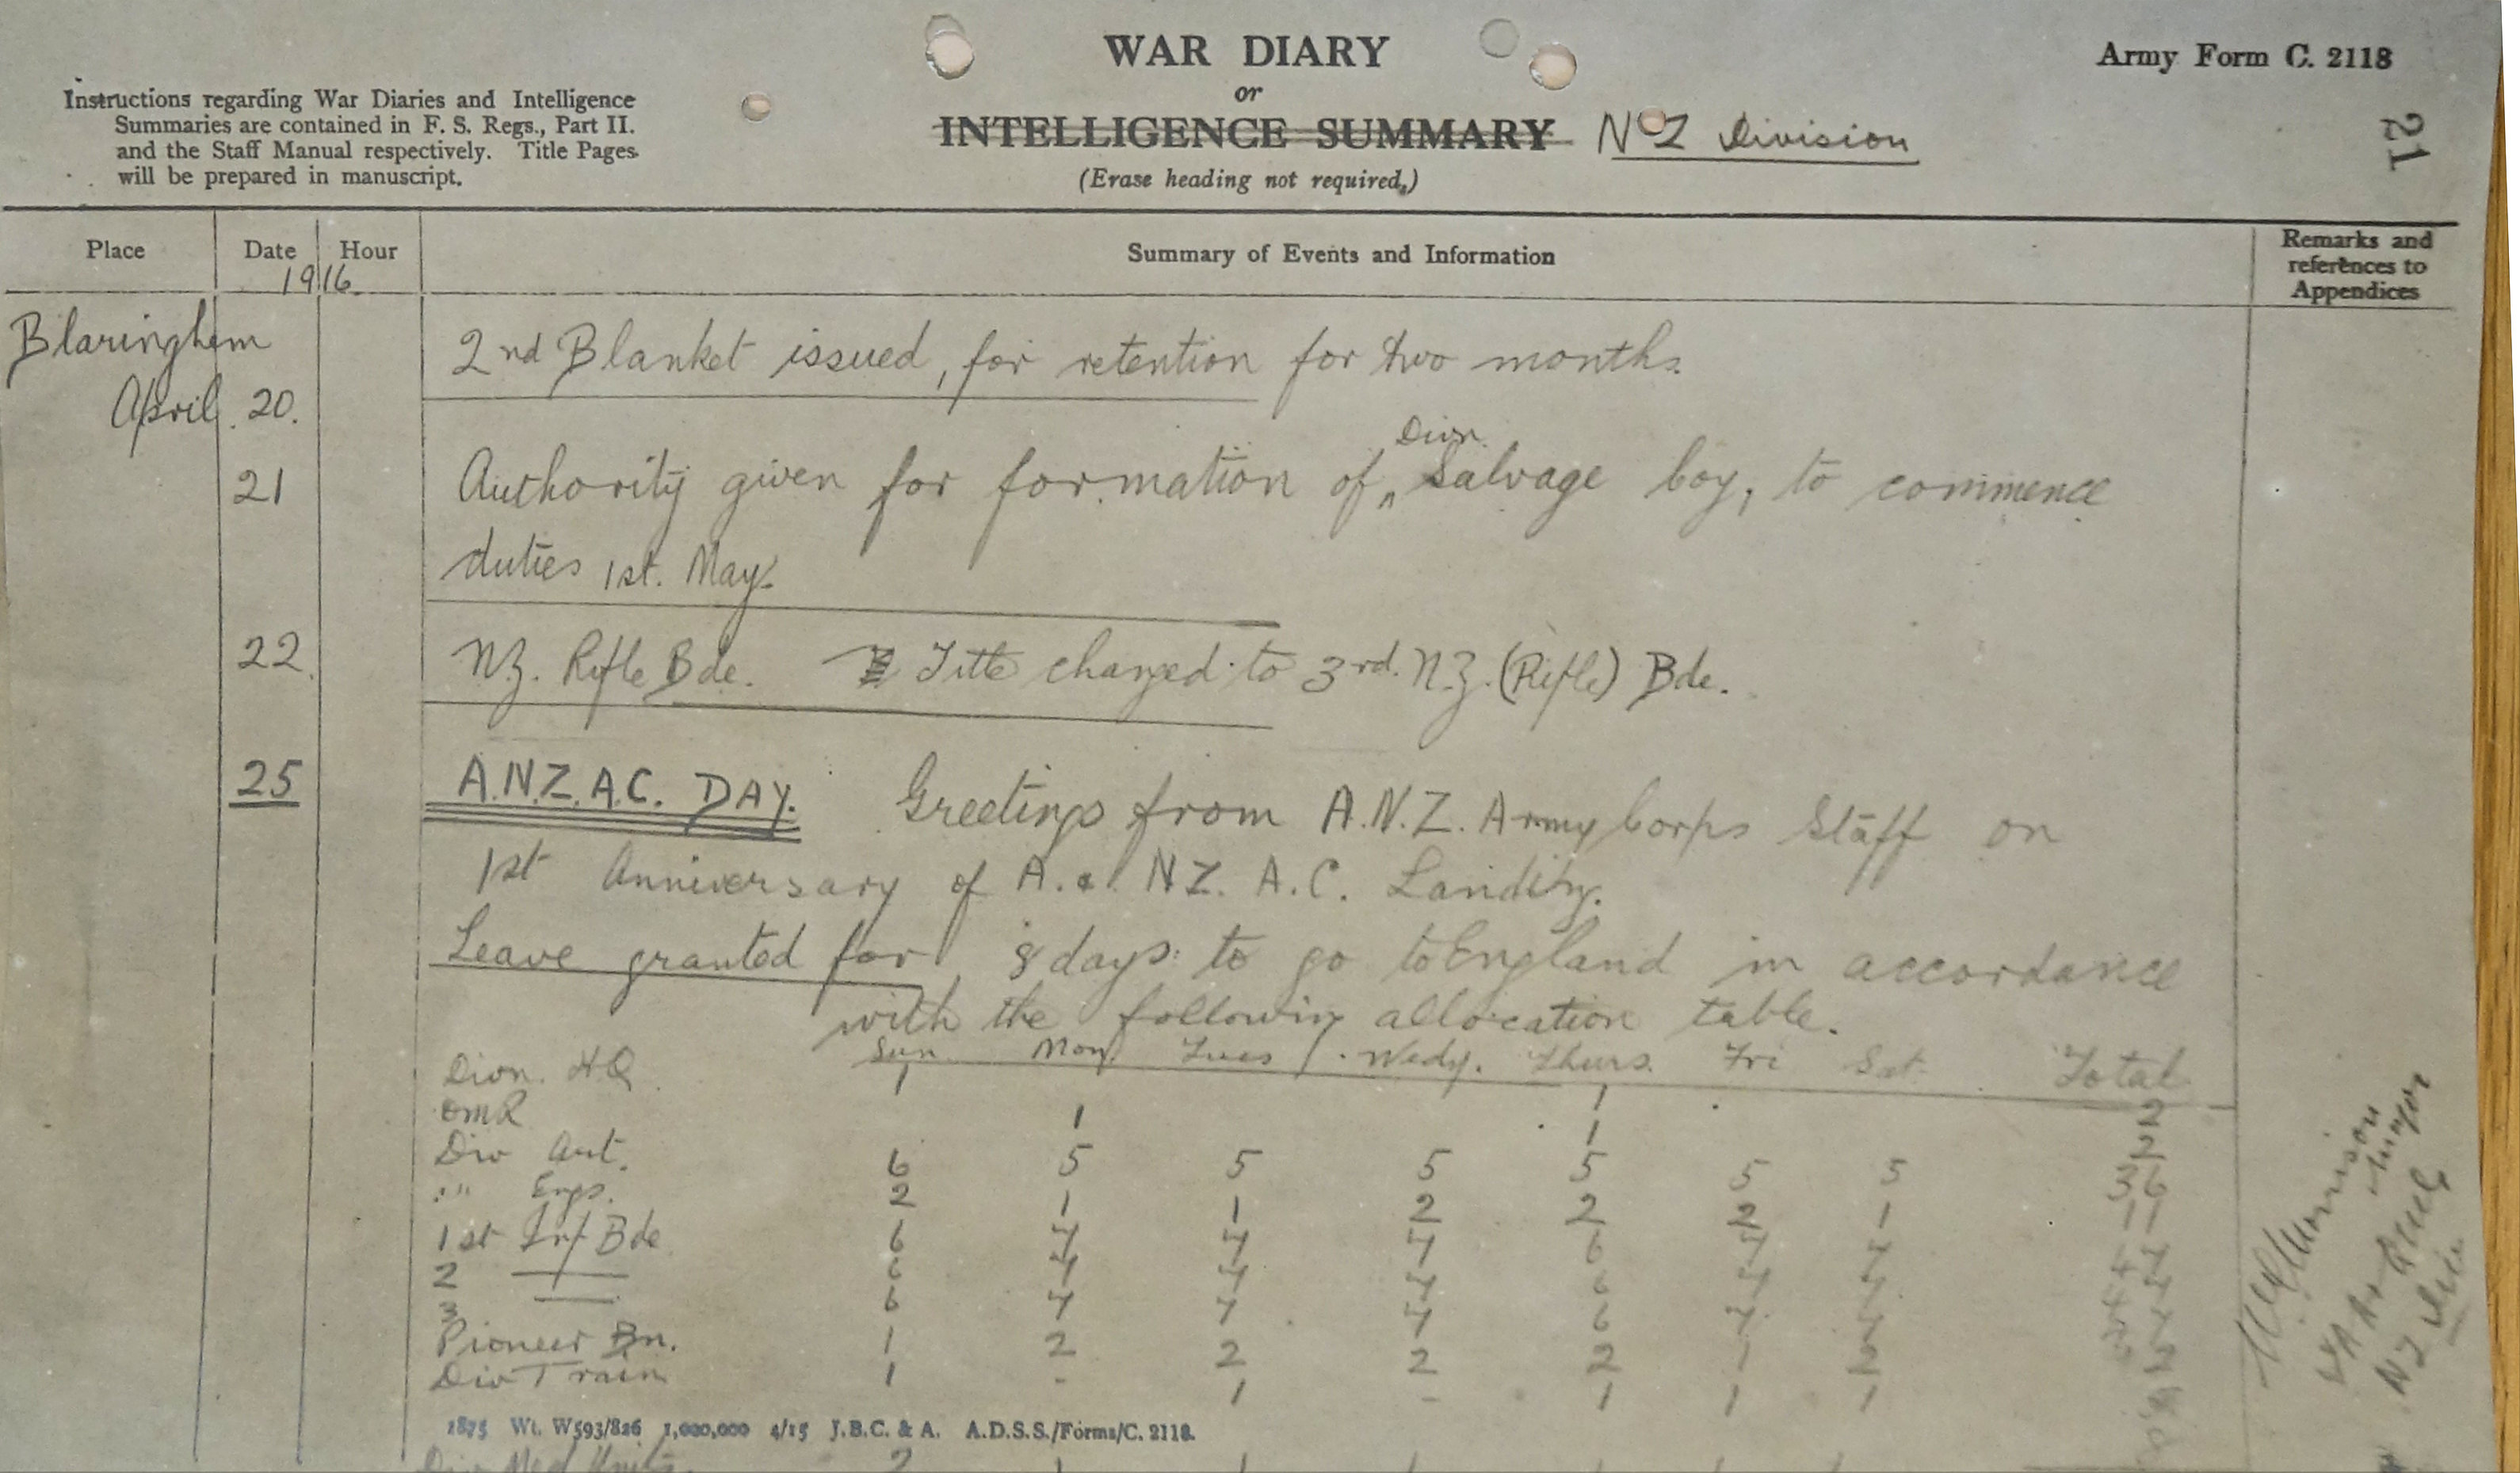 WAR DIARY
or
INTELLIGENCE SUMMARY NZ Division
(Erase heading not required.)
Army Form C. 2118
21
Instructions regarding War Diaries and Intelligence
Summaries are contained in F. S. Regs., Part II.
and the Staff Manual respectively. Title Pages
will be prepared in manuscript.
Place Date Hour Summary of Events and Information Remarks and references to Appendices
1916
Blaringhem
April 20. 2nd Blanket issued, for retention for two months.
21 Authority given for formation of Divn. Salvage Coy, to commence
duties 1st. May.
22. N.Z. Rifle Bde. Title changed to 3rd. N.Z. (Rifle) Bde.
25 A.N.Z.A.C. DAY. Greetings from A.N.Z. Army Corps Staff on
1st Anniversary of A. & NZ. A.C. Landing.
Leave granted for 8 days to go to England in accordance
with the following allocation table.
Sun. Mon. Tues. Wedy. Thurs. Fri Sat. Total
Divn. HQ. 1 1 2
OMR 1 1 2
Div Art. 6 5 5 5 5 5 5 36
" Engs. 2 1 1 2 2 2 1 11
1st Inf Bde 6 7 7 7 6 7 7
2 6 7 7 7 6 7 7
3 6 7 7 7 6 7 7
Pioneer Bn. 1 2 2 2 2 1 2
Div Train 1 - 1 - 1 1 1
1875 Wt. W593/826 1,000,000 4/15 J.B.C. & A. A.D.S.S./Forms/C. 2118.
Div Med Units 2 1 1 1 1 1 1
Major
NZ Divn